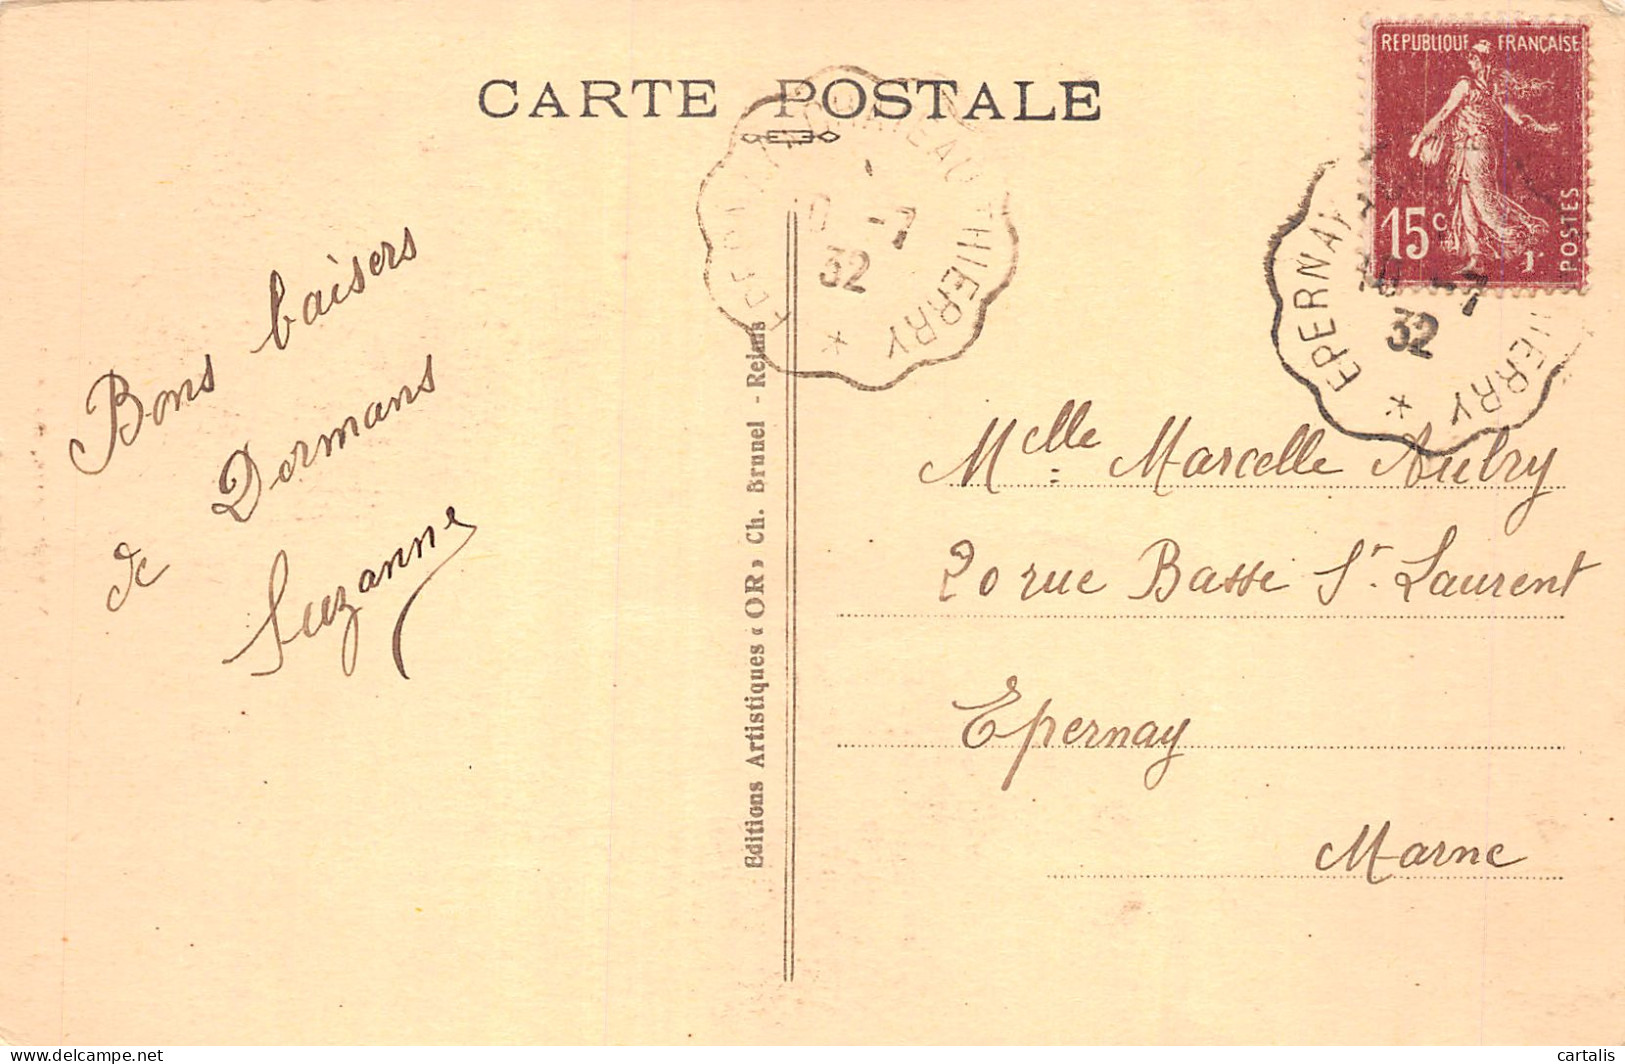 CARTE POSTALE
REPUBLIQUE FRANÇAISE
15c
POSTES
EPERNAY
CHATEAU THIERRY
10 -7
32
EPERNAY
THIERRY
10 -7
32
Bons baisers
de Dormans
Suzanne
Editions Artistiques « OR » Ch. Brunel - Reims
Melle Marcelle Aubry
20 rue Basse St. Laurent
Epernay
Marne
www.delcampe.net
cartalis